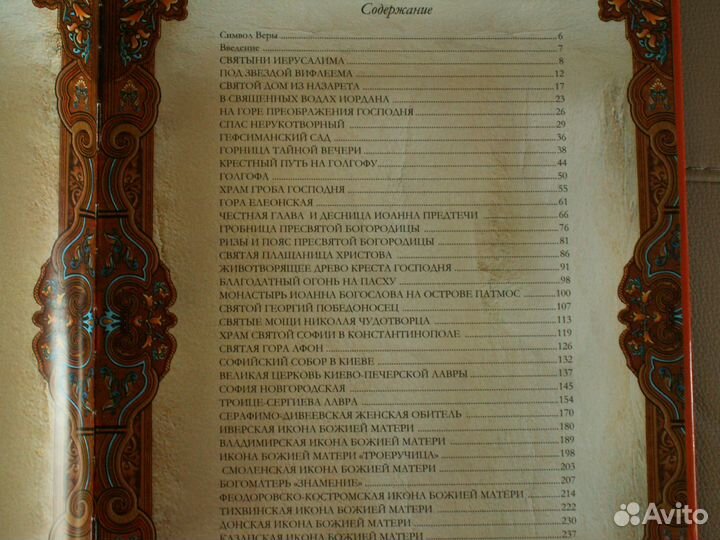 Содержание
Символ Веры 6
Введение 7
СВЯТЫНИ ИЕРУСАЛИМА 8
ПОД ЗВЕЗДОЙ ВИФЛЕЕМА 12
СВЯТОЙ ДОМ ИЗ НАЗАРЕТА 17
В СВЯЩЕННЫХ ВОДАХ ИОРДАНА 23
НА ГОРЕ ПРЕОБРАЖЕНИЯ ГОСПОДНЯ 26
СПАС НЕРУКОТВОРНЫЙ 29
ГЕФСИМАНСКИЙ САД 36
ГОРНИЦА ТАЙНОЙ ВЕЧЕРИ 38
КРЕСТНЫЙ ПУТЬ НА ГОЛГОФУ 44
ГОЛГОФА 50
ХРАМ ГРОБА ГОСПОДНЯ 55
ГОРА ЕЛЕОНСКАЯ 61
ЧЕСТНАЯ ГЛАВА И ДЕСНИЦА ИОАННА ПРЕДТЕЧИ 66
ГРОБНИЦА ПРЕСВЯТОЙ БОГОРОДИЦЫ 76
РИЗЫ И ПОЯС ПРЕСВЯТОЙ БОГОРОДИЦЫ 81
СВЯТАЯ ПЛАЩАНИЦА ХРИСТОВА 86
ЖИВОТВОРЯЩЕЕ ДРЕВО КРЕСТА ГОСПОДНЯ 91
БЛАГОДАТНЫЙ ОГОНЬ НА ПАСХУ 98
МОНАСТЫРЬ ИОАННА БОГОСЛОВА НА ОСТРОВЕ ПАТМОС 100
СВЯТОЙ ГЕОРГИЙ ПОБЕДОНОСЕЦ 107
СВЯТЫЕ МОЩИ НИКОЛАЯ ЧУДОТВОРЦА 113
ХРАМ СВЯТОЙ СОФИИ В КОНСТАНТИНОПОЛЕ 119
СВЯТАЯ ГОРА АФОН 126
СОФИЙСКИЙ СОБОР В КИЕВЕ 132
ВЕЛИКАЯ ЦЕРКОВЬ КИЕВО-ПЕЧЕРСКОЙ ЛАВРЫ 137
СОФИЯ НОВГОРОДСКАЯ 145
ТРОИЦЕ-СЕРГИЕВА ЛАВРА 154
СЕРАФИМО-ДИВЕЕВСКАЯ ЖЕНСКАЯ ОБИТЕЛЬ 170
ИВЕРСКАЯ ИКОНА БОЖИЕЙ МАТЕРИ 180
ВЛАДИМИРСКАЯ ИКОНА БОЖИЕЙ МАТЕРИ 189
ИКОНА БОЖИЕЙ МАТЕРИ «ТРОЕРУЧИЦА» 198
СМОЛЕНСКАЯ ИКОНА БОЖИЕЙ МАТЕРИ 203
БОГОМАТЕРЬ «ЗНАМЕНИЕ» 207
ФЕОДОРОВСКО-КОСТРОМСКАЯ ИКОНА БОЖИЕЙ МАТЕРИ 214
ТИХВИНСКАЯ ИКОНА БОЖИЕЙ МАТЕРИ 222
ДОНСКАЯ ИКОНА БОЖИЕЙ МАТЕРИ 230
КАЗАНСКАЯ ИКОНА БОЖИЕЙ МАТЕРИ 237
Avito